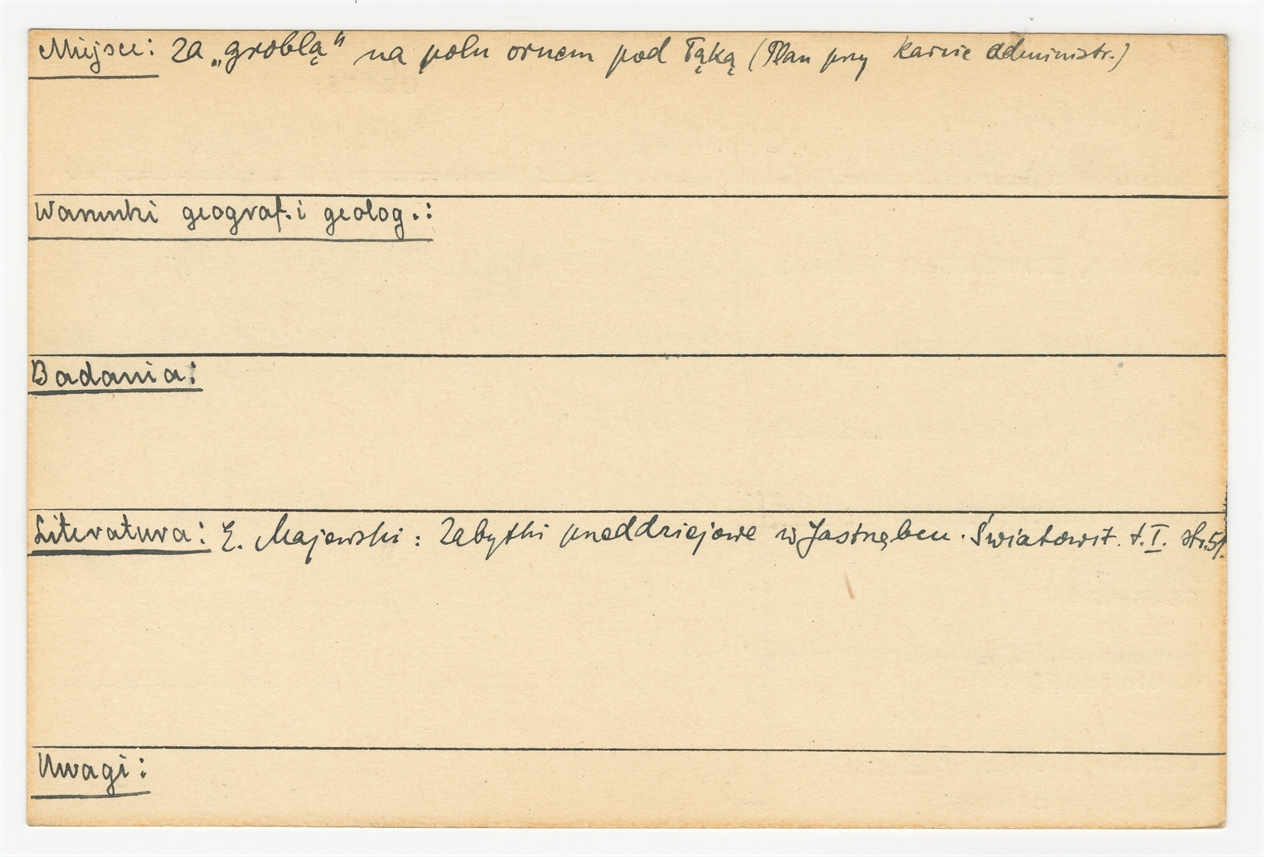 Miejsce: za „groblą" na polu ornem pod Łąką (Plan przy karcie administr.)
Warunki geograf. i geolog.:
Badania:
Literatura: E. Majewski: Zabytki przeddziejowe w Jastrzębcu. Światowit. t. I. str. 51.
Uwagi: